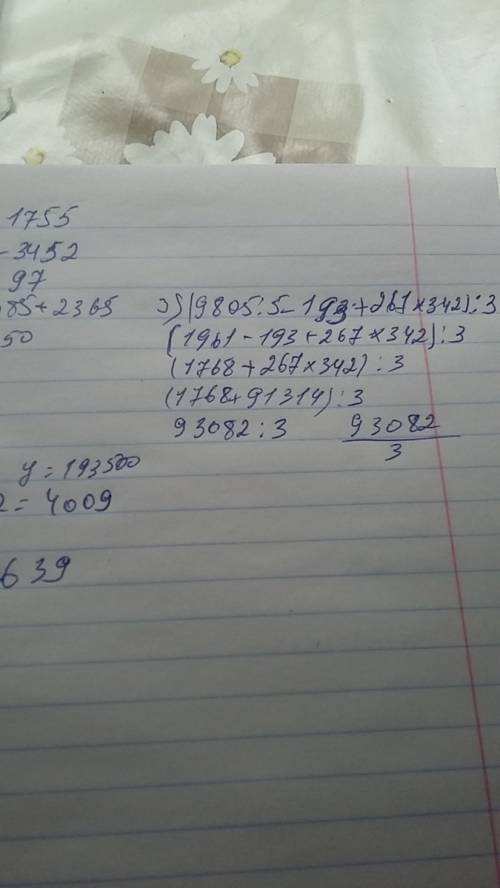 1755
- 3452
97
85 + 2365
50
(9805:5 - 193 + 267 × 342) : 3
(1961 - 193 + 267 × 342) : 3
(1768 + 267 × 342) : 3
(1768 + 91314) : 3
93082 : 3 93082
3
y = 193500
= 4009
639